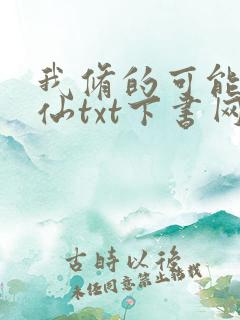 我修的可能
仙txt下书网
古時以後
未经同意禁止转载